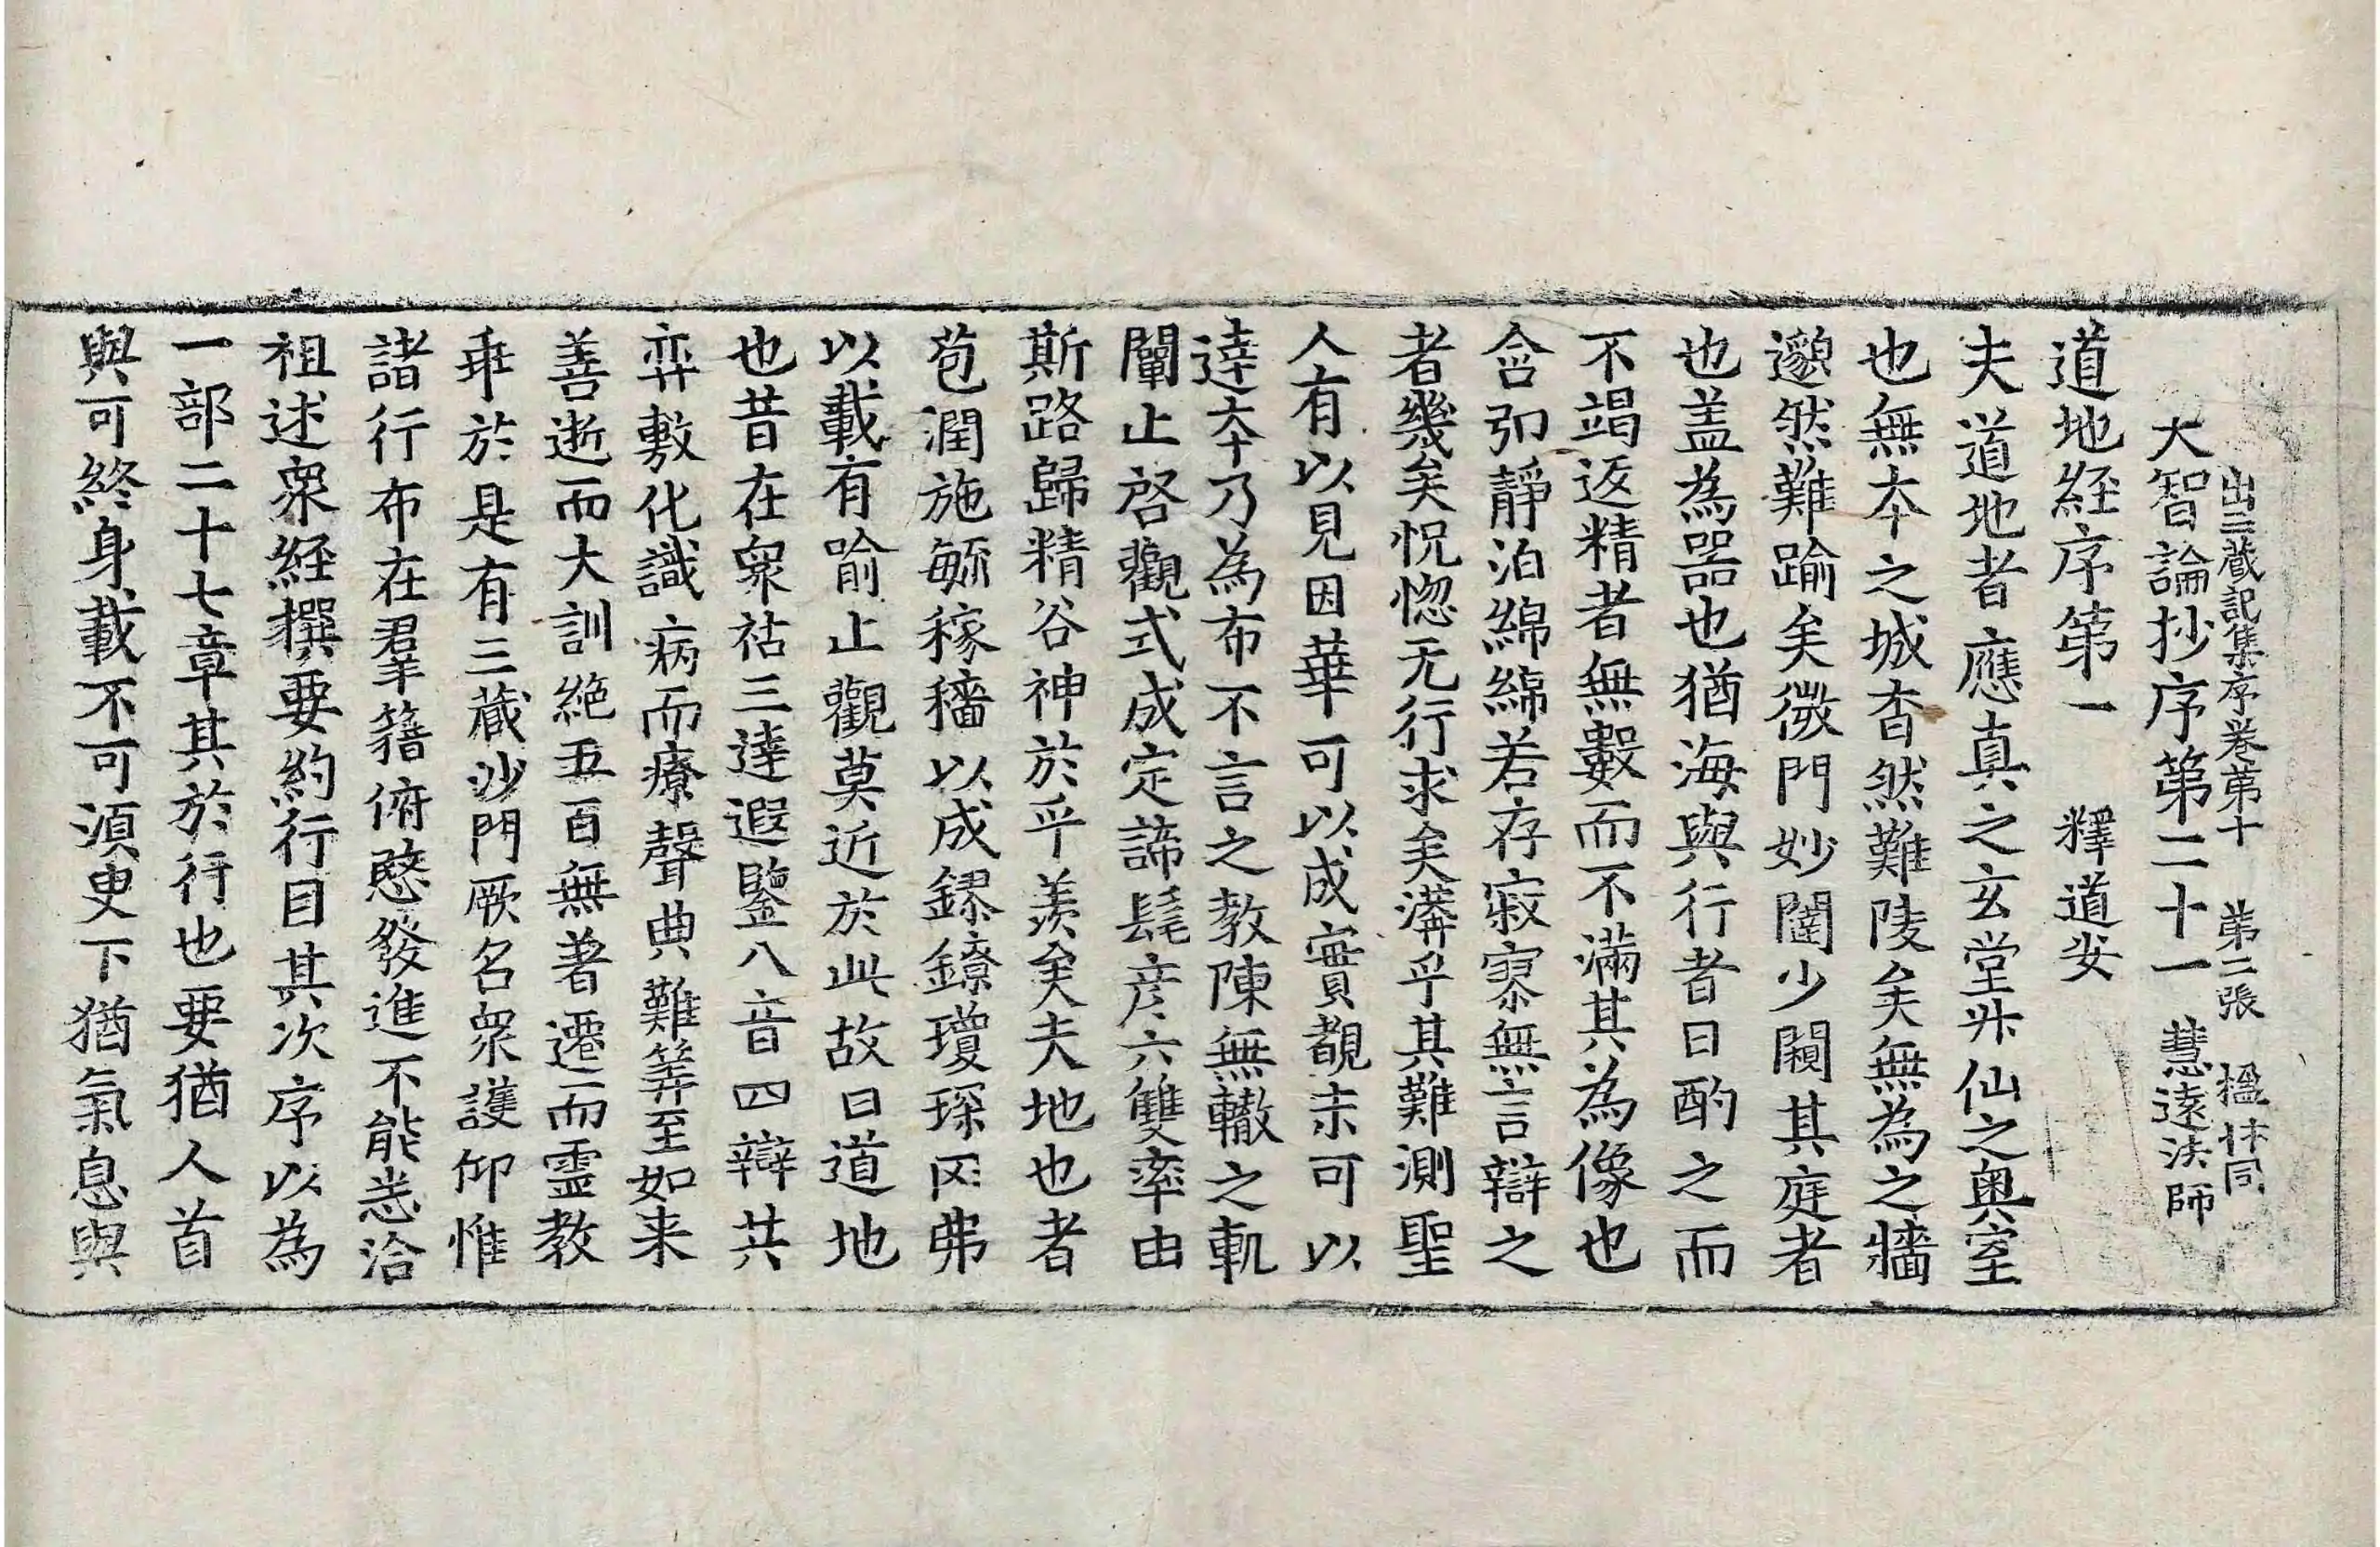 出三藏記集序卷第十　第二張　楹　同
大智論抄序第二十一　慧遠法師
道地経序第一　釋道安
夫道地者應真之玄堂升仙之奥室
也無本之城杳然難陵矣無為之牆
邈然難踰矣微門妙闥少闚其庭者
也盖為器也猶海與行者日酌之而
不竭返精者無數而不滿其為像也
含弘靜泊綿綿若存寂寥無言辯之
者幾矣怳惚无行求矣漭乎其難測聖
人有以見因華可以成實覩末可以
達本乃為布不言之教陳無轍之軌
闡止啓觀式成定諦髦彦六雙率由
斯路歸精谷神於乎羨矣夫地也者
苞潤施毓稼穡以成鏐鐐瓊琛罔弗
以載有喻止觀莫近於此故曰道地
也昔在衆祐三達遐鑒八音四辯共
弈敷化識病而療聲典難筭至如来
善逝而大訓絶五百無著遷而霊教
乖於是有三藏沙門厥名衆護仰惟
諸行布在群籍俯愍發進不能悉洽
祖述衆経撰要約行目其次序以為
一部二十七章其於行也要猶人首
與可終身載不可須臾下猶氣息與